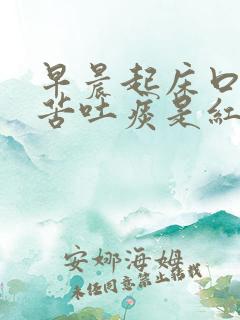 早晨起床口
苦吐痰是紅
安娜海姆
未经同意禁止转载